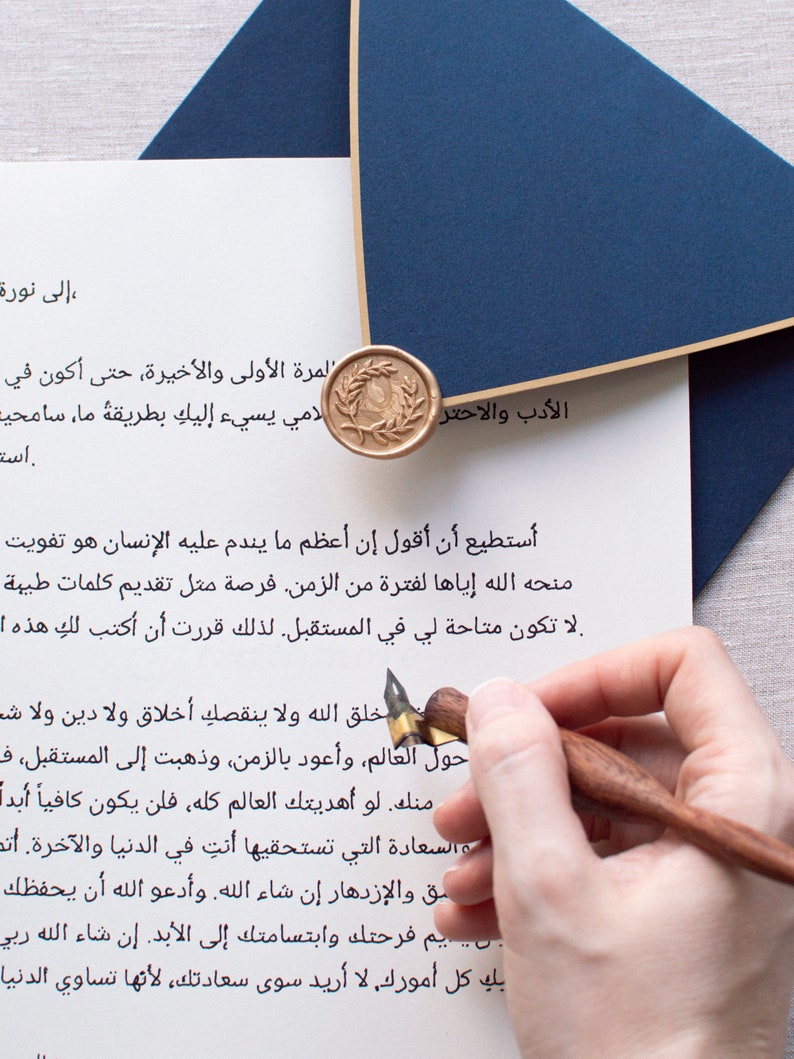 إلى نورة،
المرة الأولى والأخيرة، حتى أكون في
الأدب والاحتر لامي يسيء إليكِ بطريقةٌ ما، سامحيني
.است
أستطيع أن أقول إن أعظم ما يندم عليه الإنسان هو تفويت
منحه الله إياها لفترة من الزمن. فرصة مثل تقديم كلمات طيبة
لا تكون متاحة لي في المستقبل. لذلك قررت أن أكتب لكِ هذه
خلق الله ولا ينقصكِ أخلاق ولا دين ولا
حول العالم، وأعود بالزمن، وذهبت إلى المستقبل،
منك. لو أهديتك العالم كله، فلن يكون كافياً أبداً
والسعادة التي تستحقيها أنتِ في الدنيا والآخرة.
والإزدهار إن شاء الله. وأدعو الله أن يحفظك
يديم فرحتك وابتسامتك إلى الأبد. إن شاء الله ربي
كل أمورك. لا أريد سوى سعادتك، لأنها تساوي الدنيا